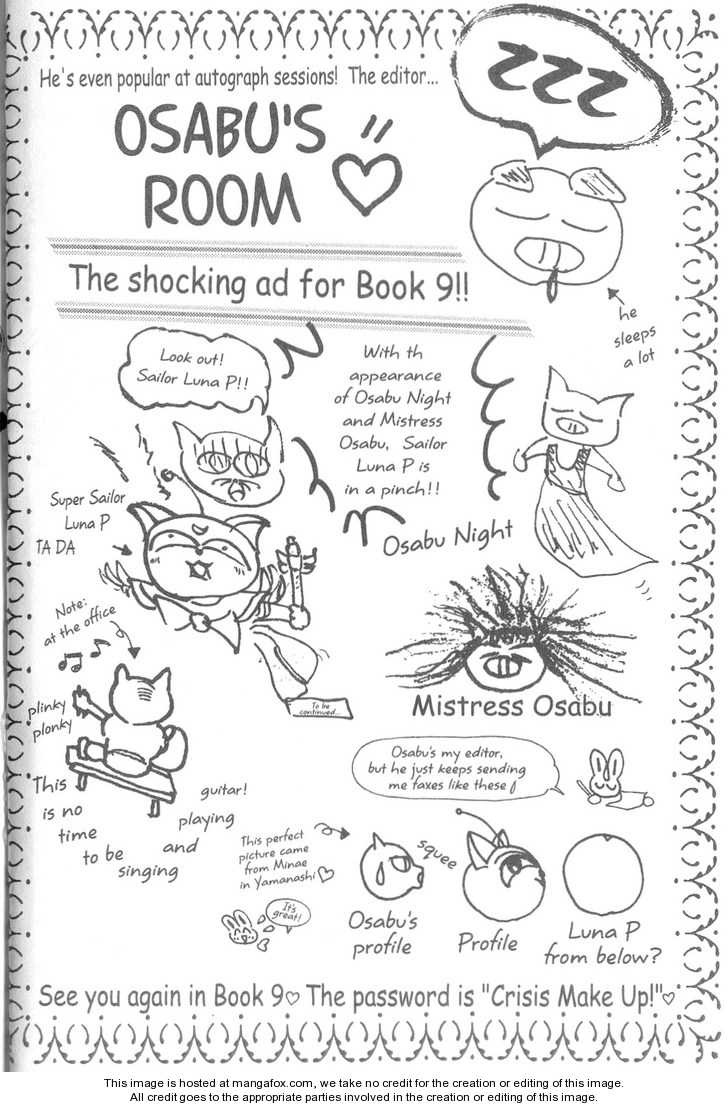 He's even popular at autograph sessions! The editor...
ZZZ
OSABU'S
ROOM
The shocking ad for Book 9!!
he
sleeps
a lot
Look out!
Sailor Luna P!!
With th
appearance
of Osabu Night
and Mistress
Osabu, Sailor
Luna P is
in a pinch!!
Super Sailor
Luna P
TA DA
Osabu Night
Note:
at the office
To be
continued...
Mistress Osabu
plinky
plonky
Osabu's my editor,
but he just keeps sending
me faxes like these
This
is no
time
to be
singing
and
playing
guitar!
This perfect
picture came
from Minae
in Yamanashi♡
squee
It's
great!
Osabu's
profile
Profile
Luna P
from below?
See you again in Book 9♡ The password is "Crisis Make Up!"♡
This image is hosted at mangafox.com, we take no credit for the creation or editing of this image.
All credit goes to the appropriate parties involved in the creation or editing of this image.